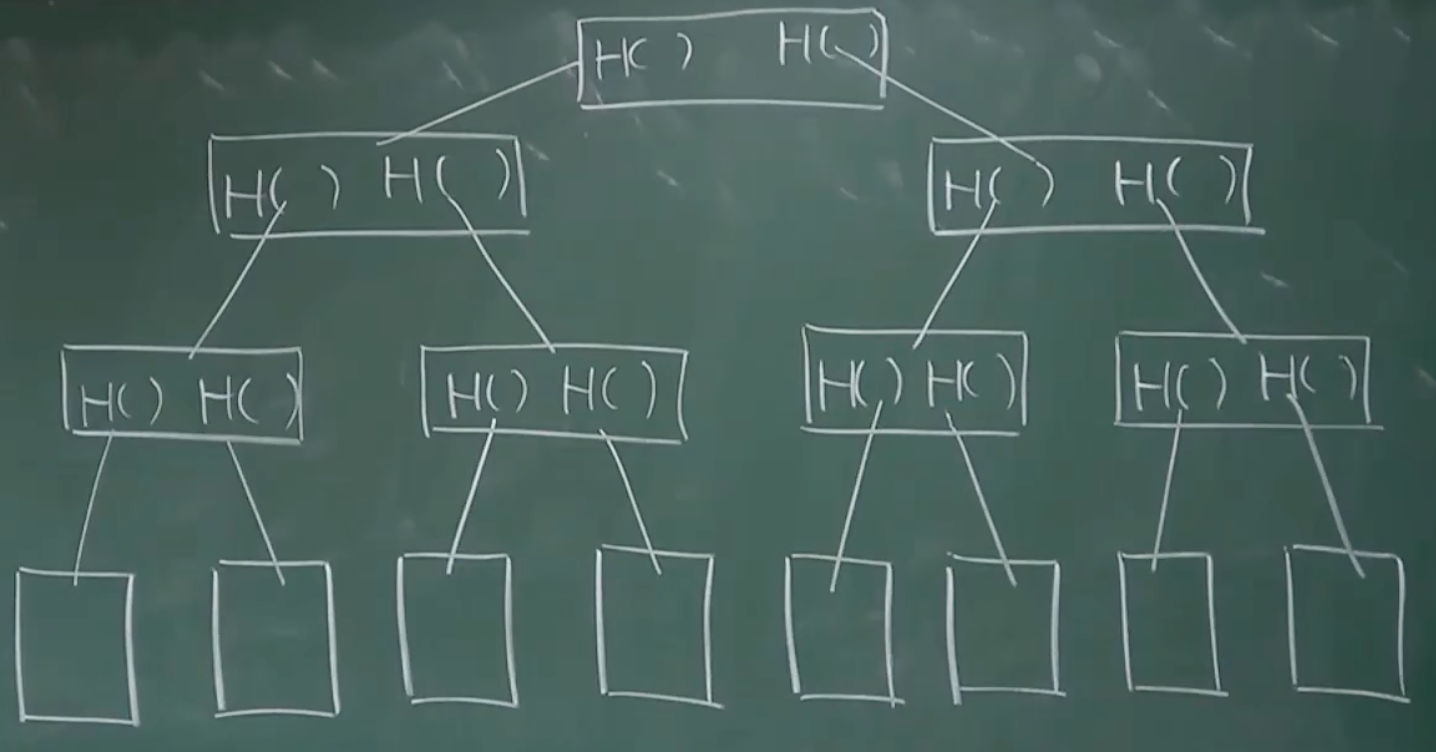 H( ) H( )
H( ) H( ) H( ) H( )
H( ) H( ) H( ) H( ) H( ) H( ) H( ) H( )